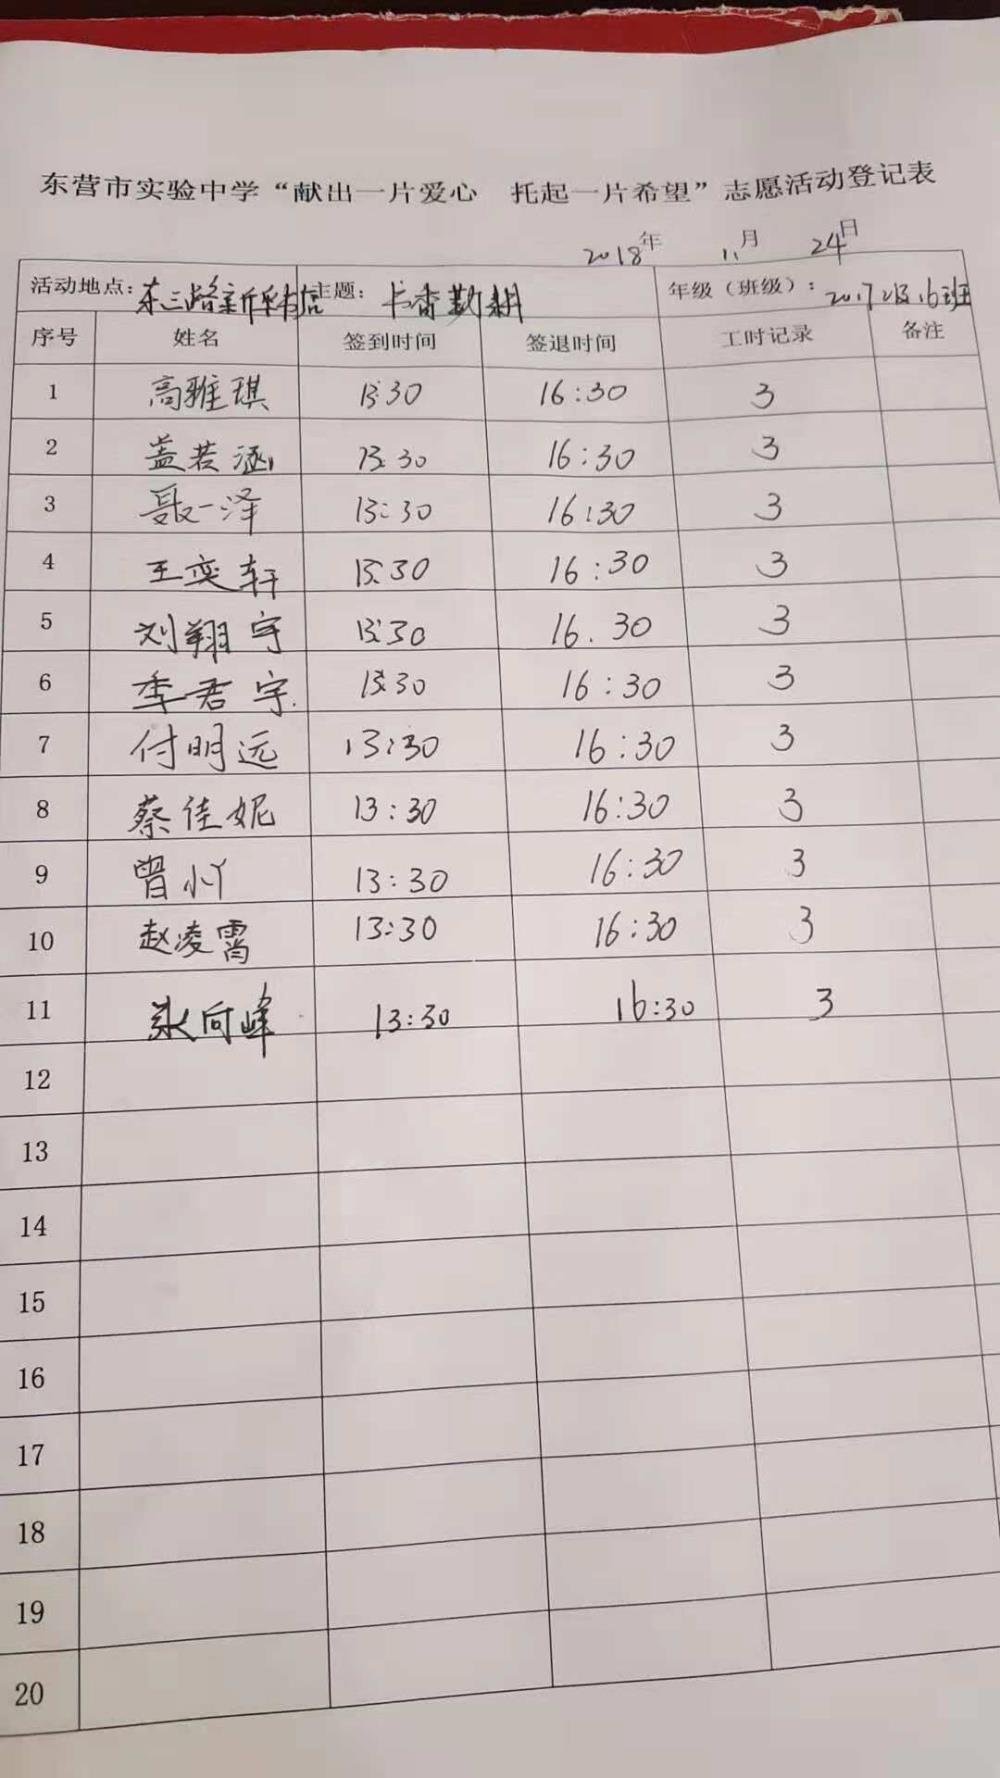 东营市实验中学“献出一片爱心 托起一片希望”志愿活动登记表
2018年 11月 24日
活动地点：东三路新华书店 主题：书香勤耕 年级（班级）：2017级16班
序号 姓名 签到时间 签退时间 工时记录 备注
1 高雅琪 13:30 16:30 3
2 盖若涵 13:30 16:30 3
3 聂一泽 13:30 16:30 3
4 王奕轩 13:30 16:30 3
5 刘翔宇 13:30 16.30 3
6 季君宇 13:30 16:30 3
7 付明远 13:30 16:30 3
8 蔡佳妮 13:30 16:30 3
9 曾小丫 13:30 16:30 3
10 赵凌霄 13:30 16:30 3
11 张向峰 13:30 16:30 3
12
13
14
15
16
17
18
19
20